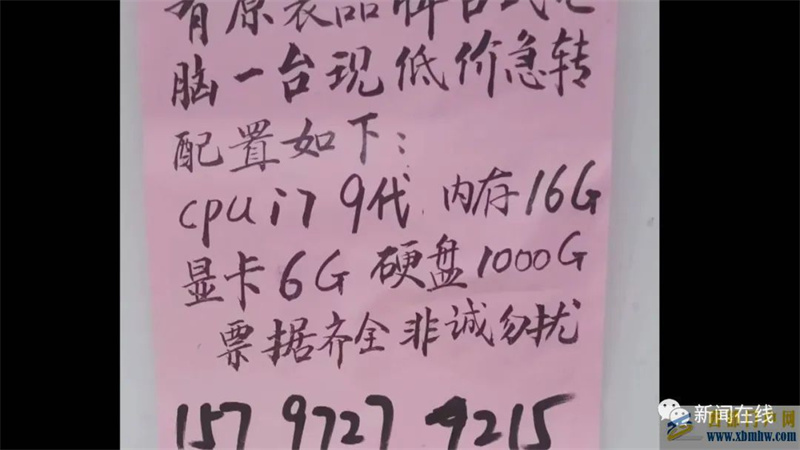 有原装品牌台式电
脑一台现低价急转
配置如下：
cpu i7 9代 内存16G
显卡6G 硬盘1000G
票据齐全非诚勿扰
157 9727 9215
新闻在线
www.xbmhw.com